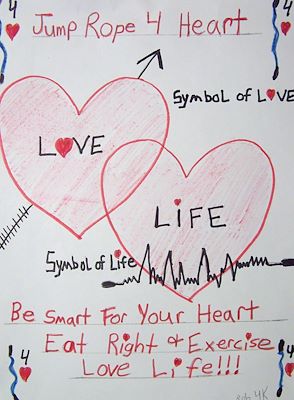 4 4
Jump Rope 4 Heart
Symbol of LOVE
LOVE
LiFE
Symbol of Life
Be Smart For Your Heart
Eat Right & Exercise
4 4
Love Life!!!
4K